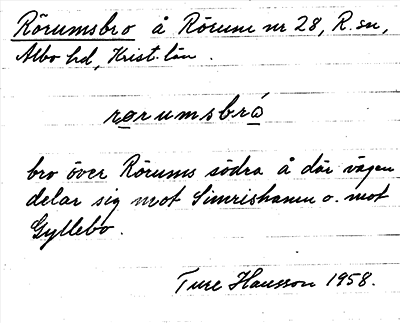 Rörumsbro å Rörum nr 28, R. sn,
Albo hd, Krist. län.
rørumsbró
bro över Rörums södra å där vägen
delar sig mot Simrishamn o. mot
Gyllebo.
Ture Hansson 1958.